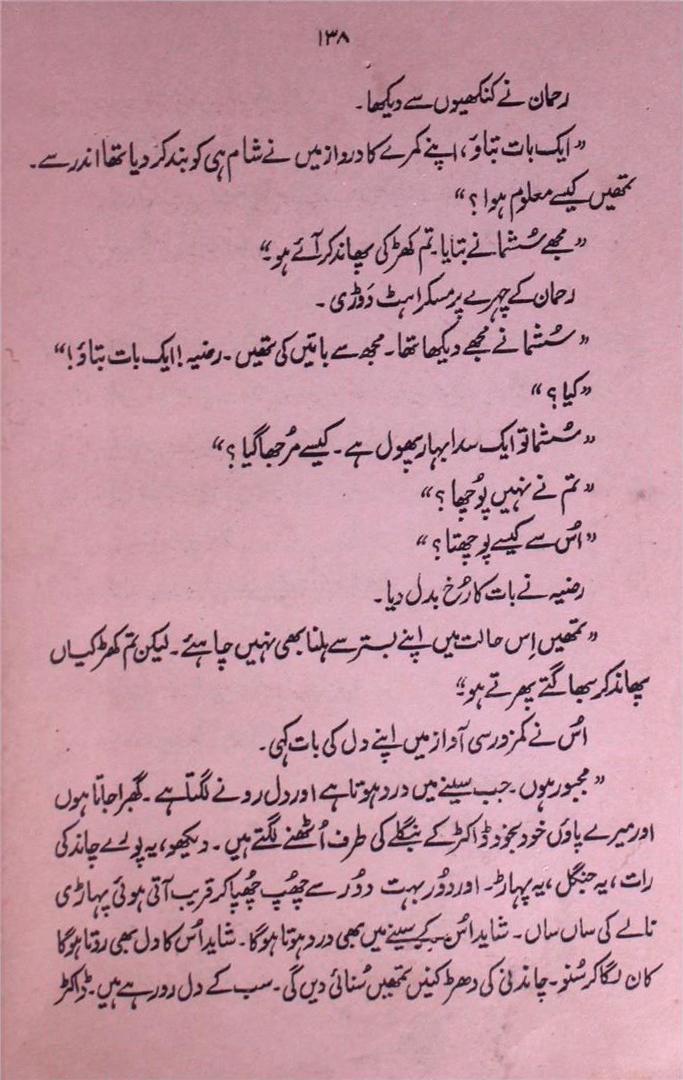 ۱۳۸
رحمان نے کنکھیوں سے دیکھا۔
”ایک بات بتاؤ، اپنے کمرے کا دروازہ میں نے شام ہی کو بند کر دیا تھا اندر سے۔
تمھیں کیسے معلوم ہوا؟“
”مجھے سُشما نے بتایا۔ تم کھڑکی پھاند کر آئے ہو۔“
رحمان کے چہرے پر مسکراہٹ دَوڑی۔
”سُشما نے مجھے دیکھا تھا۔ مجھ سے باتیں کی تھیں۔ رضیہ! ایک بات بتاؤ!“
”کیا؟“
”سُشما تو ایک سدا بہار پھول ہے۔ کیسے مُرجھا گیا؟“
”تم نے نہیں پُوچھا؟“
”اُس سے کیسے پوچھتا؟“
رضیہ نے بات کا رُخ بدل دیا۔
”تمھیں اِس حالت میں اپنے بستر سے ہلنا بھی نہیں چاہئے۔ لیکن تم کھڑکیاں
پھاند کر بھاگتے پھرتے ہو۔“
اُس نے کمزور سی آواز میں اپنے دل کی بات کہی۔
”مجبور ہوں۔ جب سینے میں درد ہوتا ہے اور دل رونے لگتا ہے۔ گھبرا جاتا ہوں
اور میرے پاؤں خود بخود ڈاکٹر کے بنگلے کی طرف اُٹھنے لگتے ہیں۔ دیکھو، یہ پورے چاند کی
رات، یہ جنگل، یہ پہاڑ۔ اور دُور بہت دُور سے چھُپ چھُپا کر قریب آتی ہوئی پہاڑی
نالے کی ساں ساں۔ شاید اُس کے سینے میں بھی درد ہوتا ہوگا۔ شاید اُس کا دل بھی روتا ہوگا
کان لگا کر سُنو۔ چاندنی کی دھڑکنیں تمھیں سُنائی دیں گی۔ سب کے دل رو رہے ہیں۔ ڈاکٹر